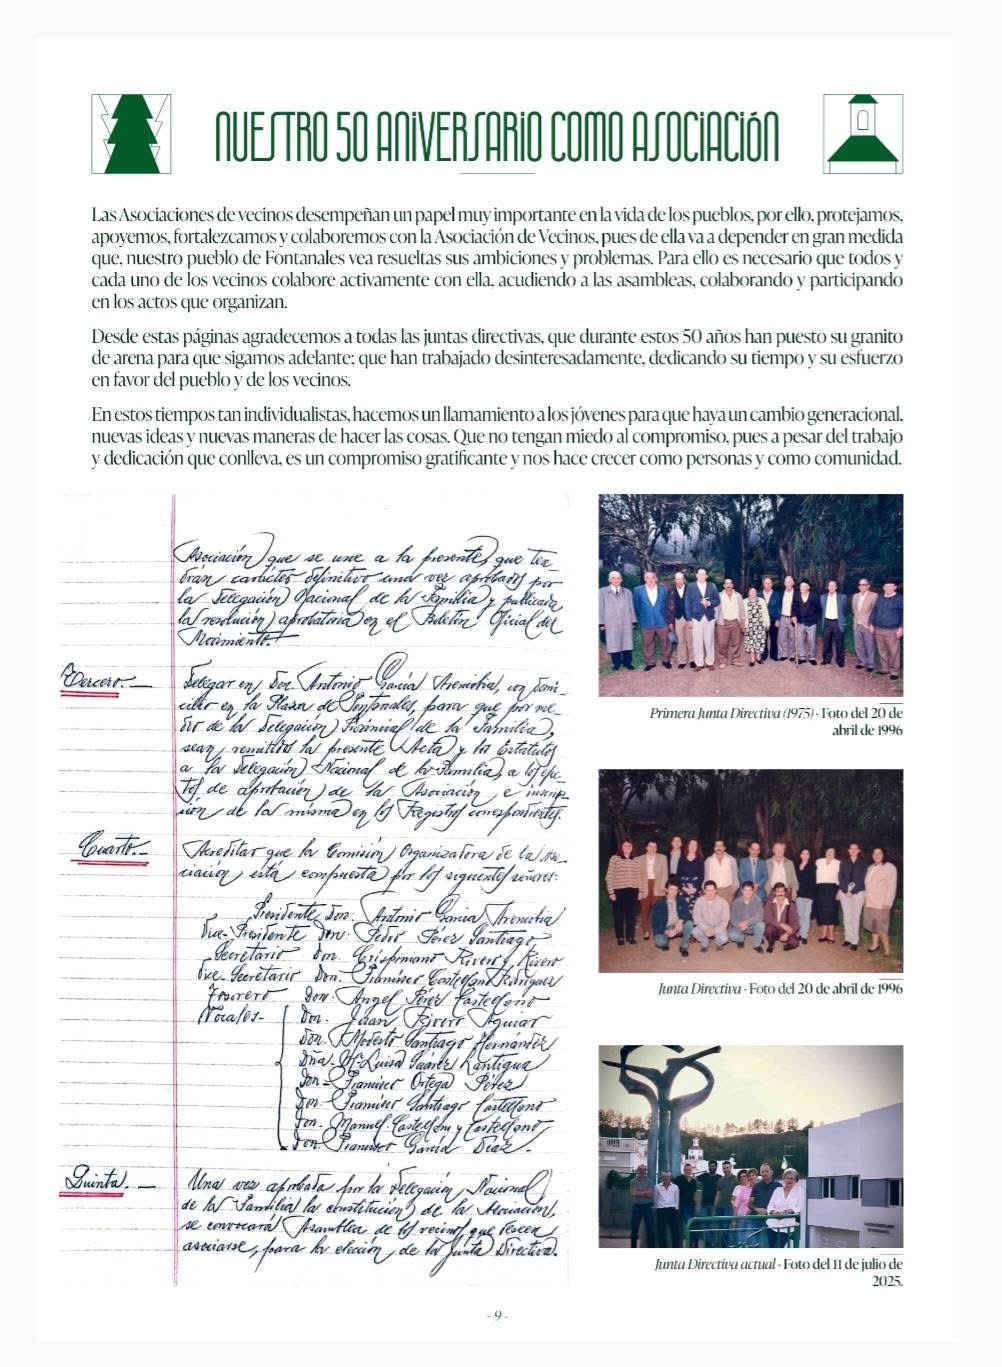 NUESTRO 50 ANIVERSARIO COMO ASOCIACIÓN
Las Asociaciones de vecinos desempeñan un papel muy importante en la vida de los pueblos, por ello, protejamos,
apoyemos, fortalezcamos y colaboremos con la Asociación de Vecinos, pues de ella va a depender en gran medida
que, nuestro pueblo de Fontanales vea resueltas sus ambiciones y problemas. Para ello es necesario que todos y
cada uno de los vecinos colabore activamente con ella, acudiendo a las asambleas, colaborando y participando
en los actos que organizan.
Desde estas páginas agradecemos a todas las juntas directivas, que durante estos 50 años han puesto su granito
de arena para que sigamos adelante; que han trabajado desinteresadamente, dedicando su tiempo y su esfuerzo
en favor del pueblo y de los vecinos.
En estos tiempos tan individualistas, hacemos un llamamiento a los jóvenes para que haya un cambio generacional,
nuevas ideas y nuevas maneras de hacer las cosas. Que no tengan miedo al compromiso, pues a pesar del trabajo
y dedicación que conlleva, es un compromiso gratificante y nos hace crecer como personas y como comunidad.
Asociación que se une a la presente, que ten-
drán carácter definitivo una vez aprobados por
la Delegación Nacional de la Familia y publicada
la resolución aprobatoria en el Boletín Oficial del
Movimiento.
Tercero.— Delegar en Don Antonio García Aremotia, con domi-
cilio en la Plaza de Fontanales, para que por me-
dio de la Delegación Provincial de la Familia,
sean remitidos la presente Acta y los Estatutos
a la Delegación Nacional de la Familia, a los efec-
tos de aprobación de la Asociación e inscrip-
ción de la misma en los Registros correspondientes.
Cuarto.— Acreditar que la Comisión Organizadora de la Aso-
ciación, está compuesta por los siguientes señores:
Presidente Don: Antonio García Aremotia
Vice-Presidente Don: Pedro Pérez Santiago
Secretario Don. Crispiniano Rivero y Rivero
Vice-Secretario Don. Francisco Castellano Rodríguez
Tesorero Don: Angel Pérez Castellano
Vocales- Don. Juan Rivero Aguiar
Don. Modesto Santiago Hernández
Dña. Mª Luisa Suárez Lantigua
Don- Francisco Ortega Pérez
Don. Francisco Santiago Castellano
Don. Manuel Castellano y Castellano
Don. Francisco García Díaz.-
Quinta.— Una vez aprobata por la Delegación Nacional
de la Familia la constitución de la Asociación,
se convocará Asamblea de los vecinos que deseen
asociarse, para la elección de la Junta Directiva.
Primera Junta Directiva (1975) - Foto del 20 de
abril de 1996
Junta Directiva - Foto del 20 de abril de 1996
Junta Directiva actual - Foto del 11 de julio de
2025.
- 9 -